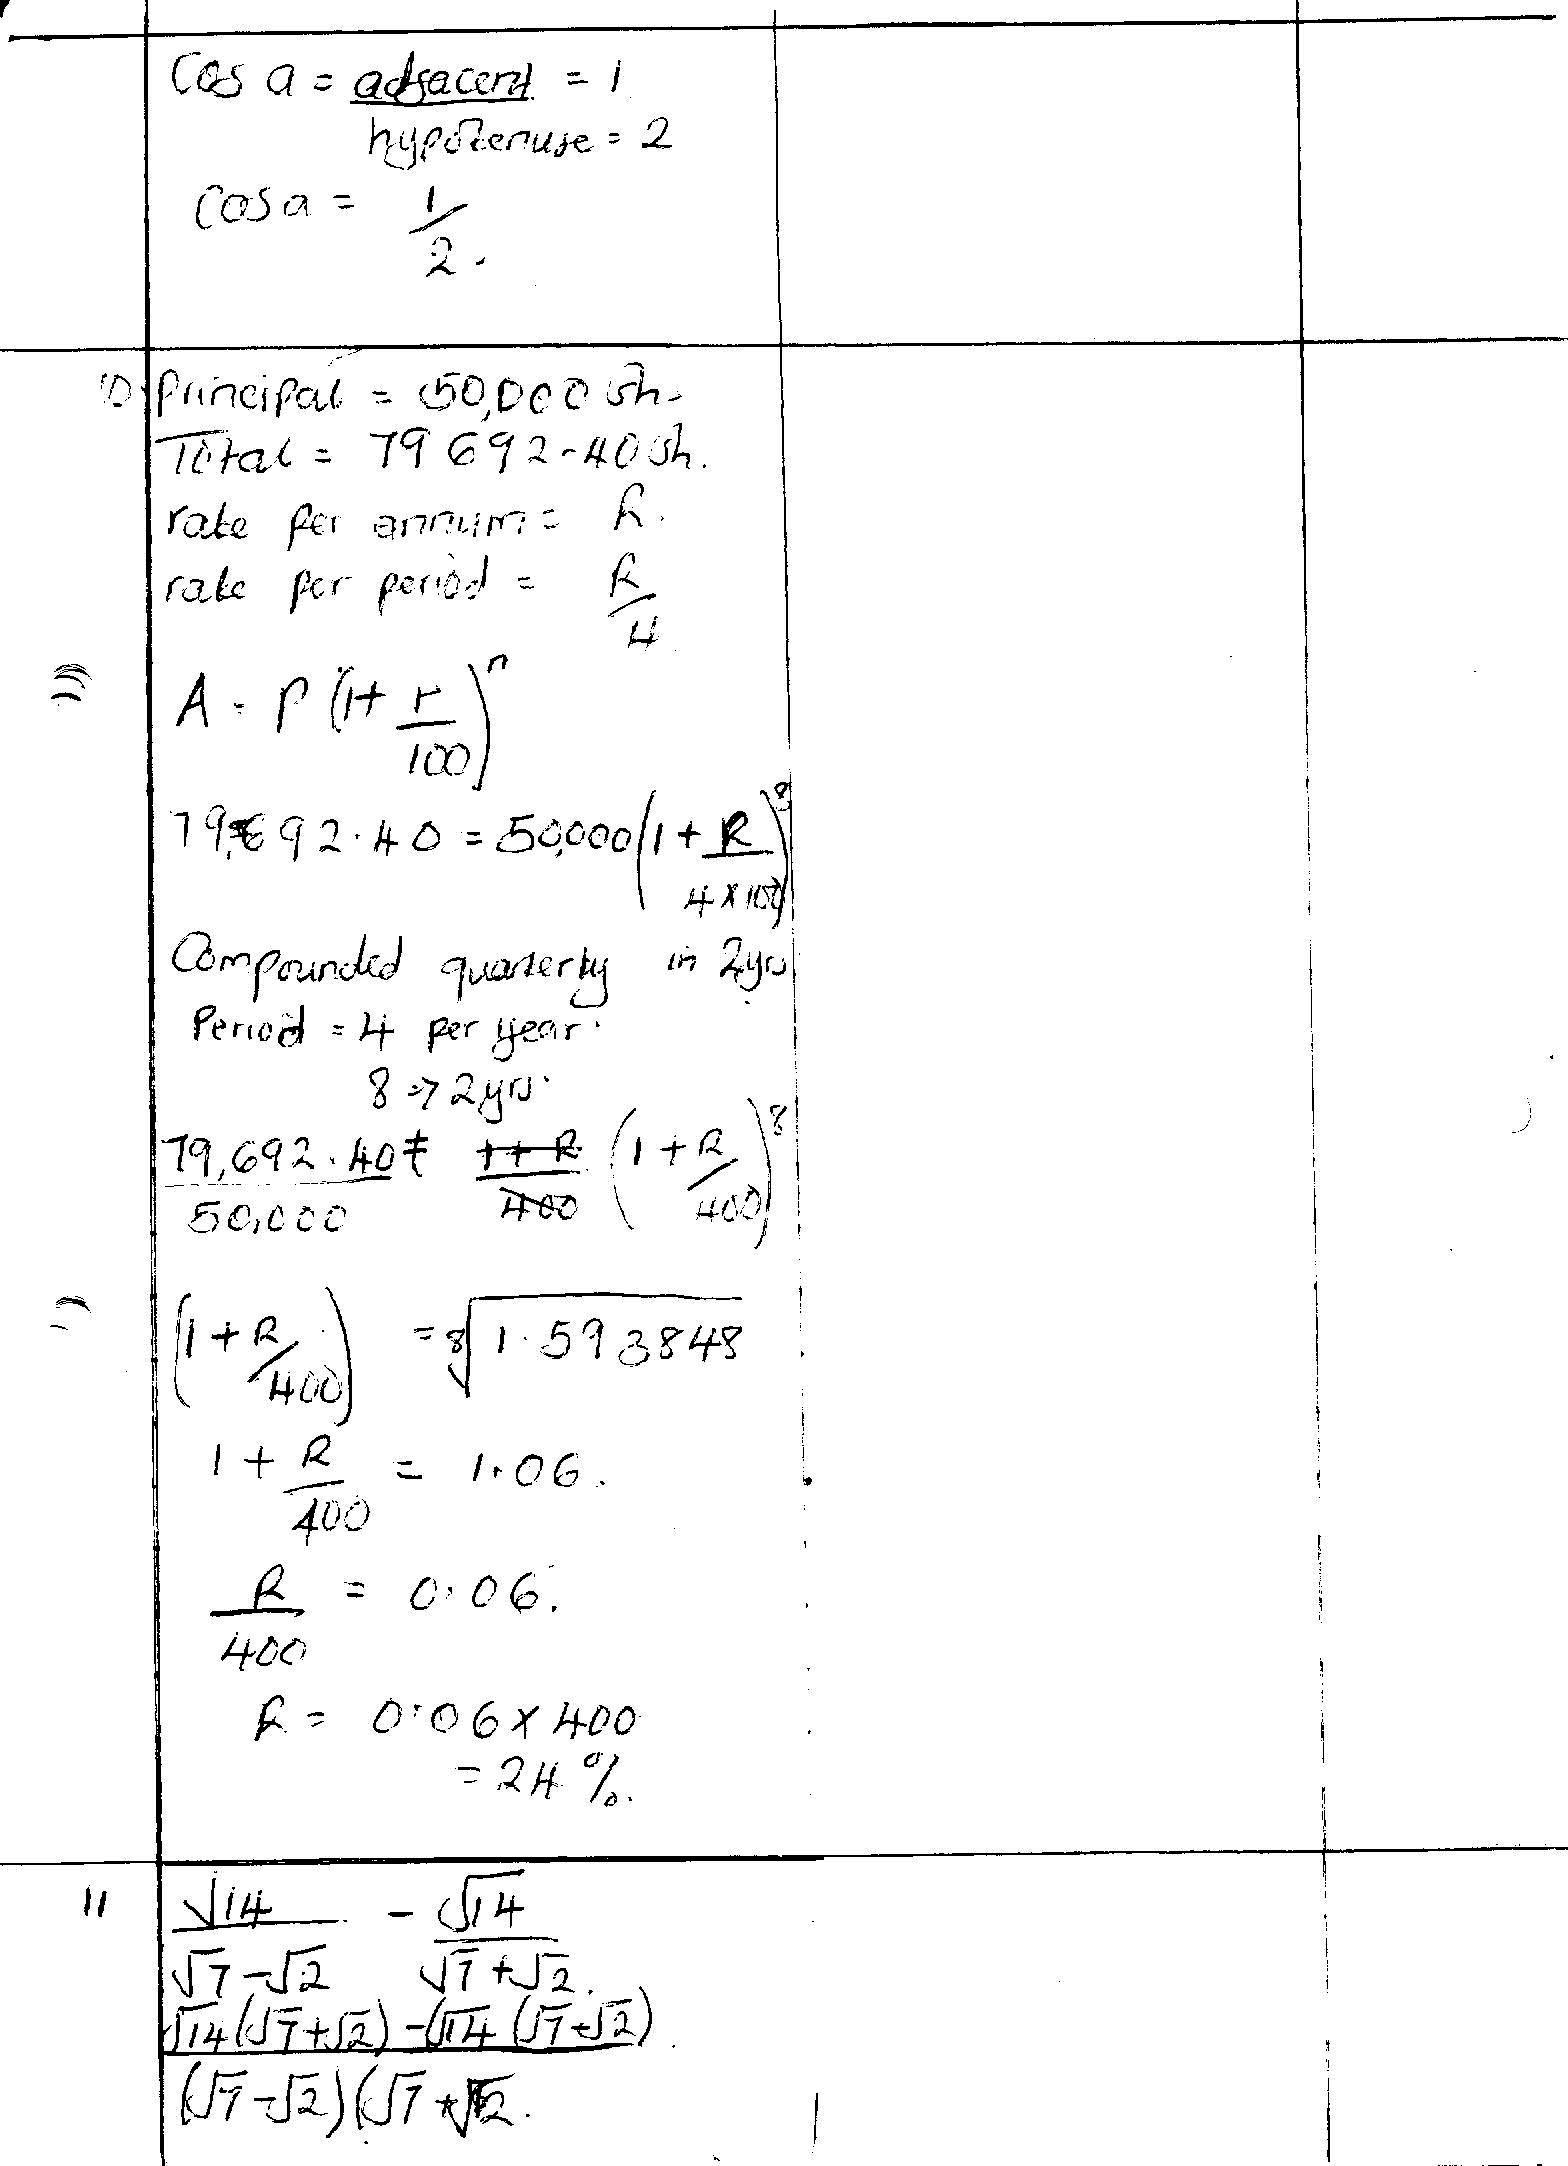 Cos a = adjacent = 1
hypotenuse = 2
Cos a = 1/2.
10. Principal = 50,000 sh.
Total = 79 692.40 sh.
rate per annum = R.
rate per period = R/4
A = P (1 + r/100)^n
79,692.40 = 50,000 (1 + R/4 × 100)^8
Compounded quarterly in 2yrs
Period = 4 per year.
8 => 2 yrs.
79,692.40/50,000 = 1 + R/400 (1 + R/400)^8
(1 + R/400) = 8√1.593848
1 + R/400 = 1.06.
R/400 = 0.06.
R = 0.06 × 400
= 24 %.
11 √14/√7 - √2 - √14/√7 + √2.
√14 (√7 + √2) - (√14 (√7 - √2)
(√7 - √2) (√7 + √2.